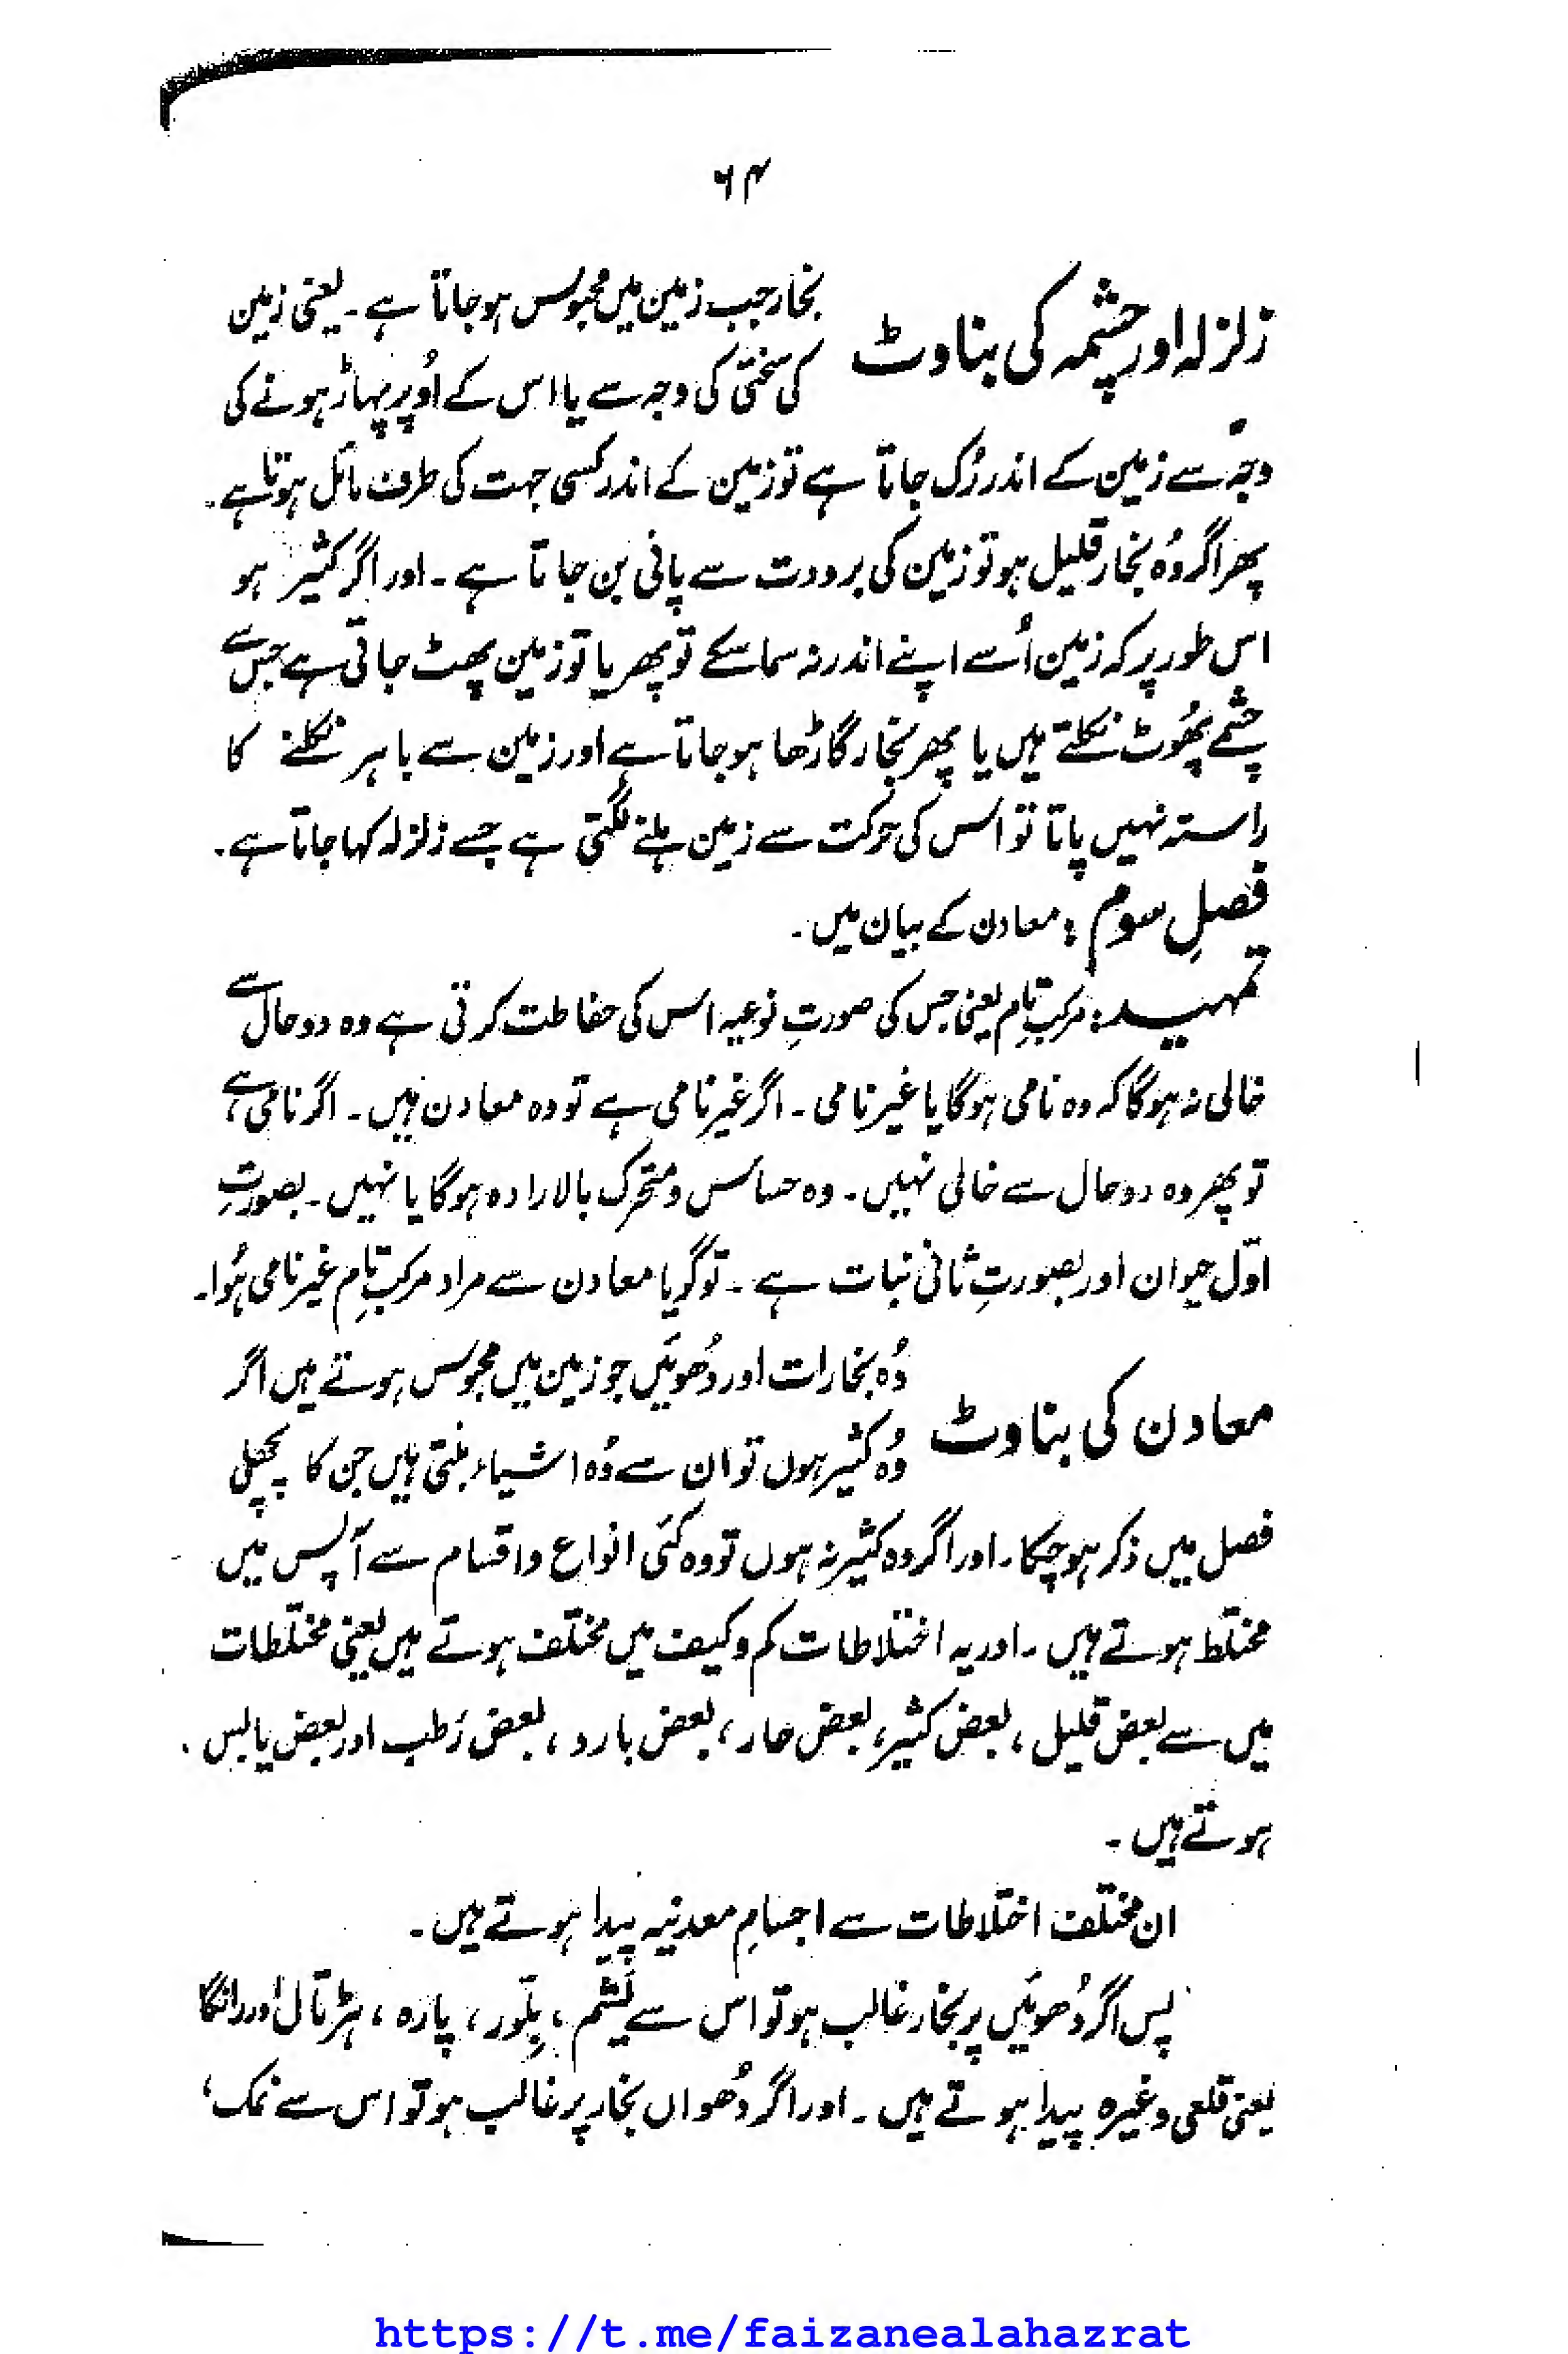 ۶۴
زلزلہ اور چشمہ کی بناوٹ
بخار جب زمین میں محبوس ہو جاتا ہے۔ یعنی زمین
کی سختی کی وجہ سے یا اس کے اُوپر پہاڑ ہونے کی
وجہ سے زمین کے اندر رُک جاتا ہے تو زمین کے اندر کسی جہت کی طرف مائل ہوتا ہے۔
پھر اگر وُہ بخار قلیل ہو تو زمین کی برودت سے پانی بن جاتا ہے۔ اور اگر کثیر ہو
اس طور پر کہ زمین اُسے اپنے اندر نہ سما سکے تو پھر یا تو زمین پھٹ جاتی ہے جس سے
چشمے پھُوٹ نکلتے ہیں یا پھر بخار گاڑھا ہو جاتا ہے اور زمین سے باہر نکلنے کا
راستہ نہیں پاتا تو اس کی حرکت سے زمین ہلنے لگتی ہے جسے زلزلہ کہا جاتا ہے۔
فصلِ سوم : معادن کے بیان میں۔
تمہید : مرکبِ تام یعنی جس کی صورتِ نوعیہ اس کی حفاظت کرتی ہے وہ دو حال سے
خالی نہ ہوگا کہ وہ نامی ہوگا یا غیر نامی۔ اگر غیر نامی ہے تو وہ معادن ہیں۔ اگر نامی ہے،
تو پھر وہ دو حال سے خالی نہیں۔ وہ حساس و متحرک بالارادہ ہوگا یا نہیں۔ بصورتِ
اوّل حیوان اور بصورتِ ثانی نبات ہے۔ تو گویا معادن سے مراد مرکبِ تام غیر نامی ہُوا۔
معادن کی بناوٹ
وُہ بخارات اور دُھوئیں جو زمین میں محبوس ہوتے ہیں اگر
وُہ کثیر ہوں تو ان سے وُہ اشیاء بنتی ہیں جن کا پچھلی
فصل میں ذکر ہو چکا۔ اور اگر وہ کثیر نہ ہوں تو وہ کئی انواع و اقسام سے آپس میں
مختلط ہوتے ہیں۔ اور یہ اختلاطات کم و کیف میں مختلف ہوتے ہیں یعنی مختلطات
میں سے بعض قلیل ، بعض کثیر، بعض حار ، بعض بارد ، بعض رَطب اور بعض یابس
ہوتے ہیں۔
ان مختلف اختلاطات سے اجسامِ معدنیہ پیدا ہوتے ہیں۔
پس اگر دُھوئیں پر بخار غالب ہو تو اس سے یَشم ، بِلّور ، پارہ ، ہڑتال اور رانگا
یعنی قلعی وغیرہ پیدا ہوتے ہیں۔ اور اگر دُھواں بخار پر غالب ہو تو اس سے نمک ،
https://t.me/faizanealahazrat